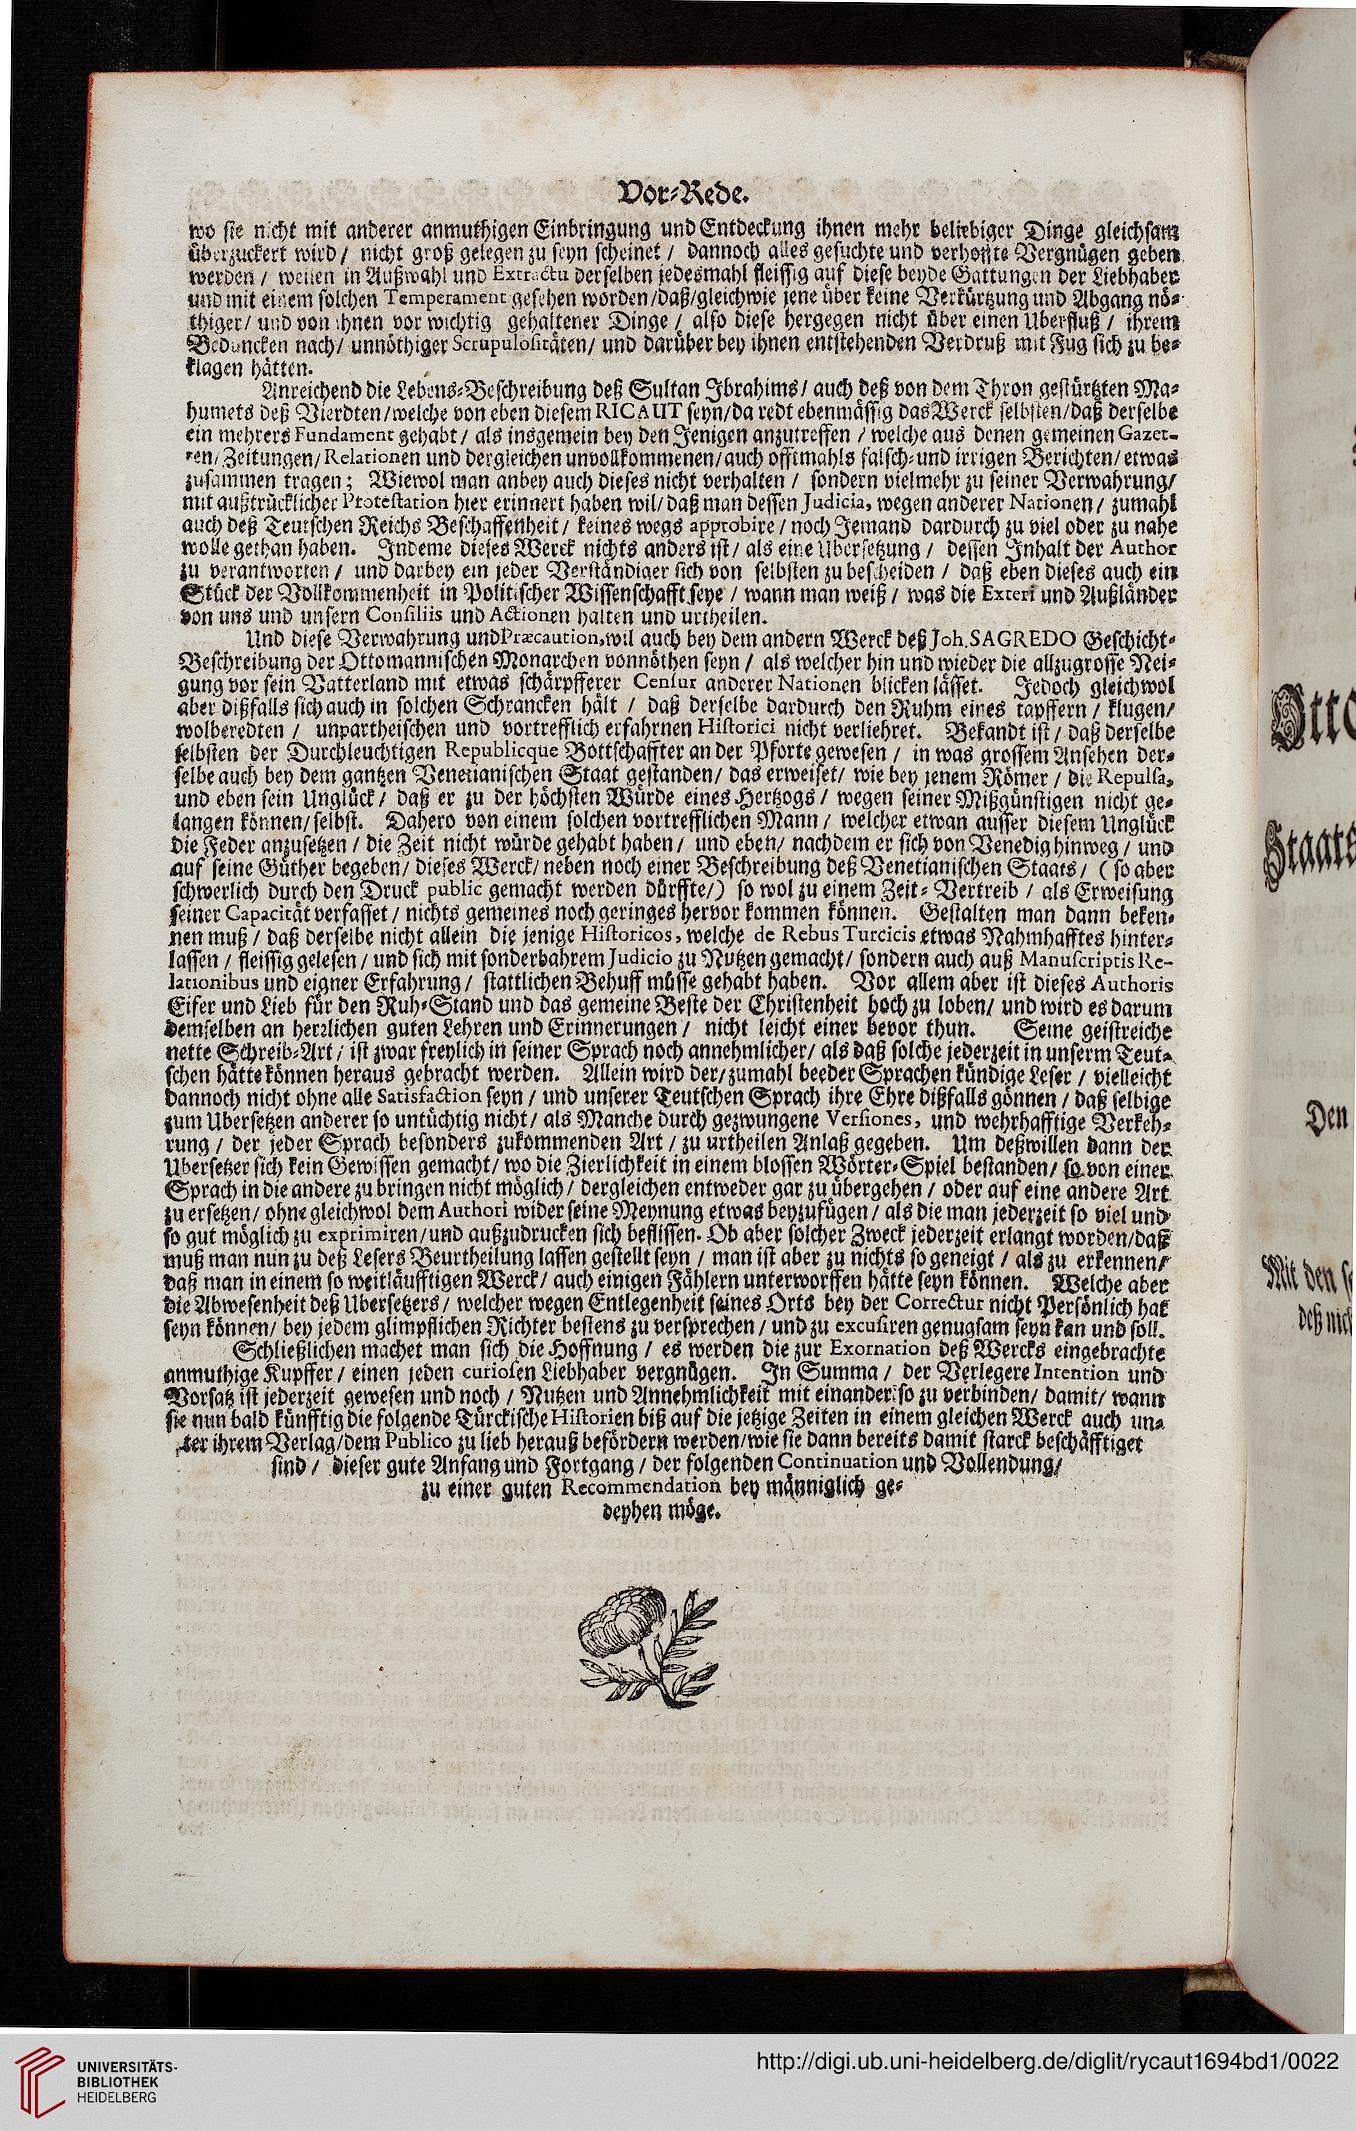 Vor-Rede.
wo sie nicht mit anderer anmuthigen Einbringung und Entdeckung ihnen mehr beliebiger Dinge gleichsam
überzuckert wird / nicht groß gelegen zu seyn scheinet / dannoch alles gesuchte und verhoffte Vergnügen geben
werden / weilen in Außwahl und Extractu derselben jedesmahl fleissig auf diese beyde Gattungen der Liebhaber
und mit einem solchen Temperament gesehen worden /daß/gleichwie jene über keine Verkürtzung und Abgang nö-
thiger/ und von ihnen vor wichtig gehaltener Dinge / also diese hergegen nicht über einen Uberfluß / ihrem
Beduncken nach/ unnöthiger Scrupulositäten/ und darüber bey ihnen entstehenden Verdruß mit Fug sich zu be-
klagen hätten.
Anreichend die Lebens-Beschreibung deß Sultan Ibrahims/ auch deß von dem Thron gestürtzten Ma-
humets deß Vierdten /welche von eben diesem RICAUT seyn/da redt ebenmässig das Werck selbsten/daß derselbe
ein mehrers Fundament gehabt / als insgemein bey den Jenigen anzutreffen / welche aus denen gemeinen Gazet-
ten/ Zeitungen/ Relationen und dergleichen unvollkommenen/auch offtmahls falsch-und irrigen Berichten/ etwas
zusammen tragen; Wiewol man anbey auch dieses nicht verhalten / sondern vielmehr zu seiner Verwahrung/
mit außtrücklicher Protestation hier erinnert haben wil/ daß man dessen Judicia, wegen anderer Nationen / zumahl
auch deß Teutschen Reichs Beschaffenheit / keines wegs approbire / noch Jemand dardurch zu viel oder zu nahe
wolle gethan haben. Indeme dieses Werck nichts anders ist / als eine Ubersetzung / dessen Inhalt der Author
zu verantworten / und darbey ein jeder Verständiger sich von selbsten zu bescheiden / daß eben dieses auch ein
Stück der Vollkommenheit in Politischer Wissenschafft seye / wann man weiß / was die Exteri und Außländer
von uns und unsern Consiliis und Actionen halten und urtheilen.
Und diese Verwahrung und Præcaution, wil auch bey dem andern Werck deß Joh. SAGREDO Geschicht-
Beschreibung der Ottomannischen Monarchen vonnöthen seyn / als welcher hin und wieder die allzugrosse Nei-
gung vor sein Vatterland mit etwas schärpfferer Censur anderer Nationen blicken lässet. Jedoch gleichwol
aber dißfalls sich auch in solchen Schrancken hält / daß derselbe dardurch den Ruhm eines tapffern / klugen/
wolberedten / unpartheischen und vortrefflich erfahrnen Historici nicht verliehret. Bekandt ist / daß derselbe
selbsten der Durchleuchtigen Republicque Bottschaffter an der Pforte gewesen / in was grossem Ansehen der-
selbe auch bey dem gantzen Venetianischen Staat gestanden/ das erweiset/ wie bey jenem Römer / die Repulsa,
und eben sein Unglück / daß er zu der höchsten Würde eines Hertzogs / wegen seiner Mißgünstigen nicht ge-
langen können/ selbst. Dahero von einem solchen vortrefflichen Mann / welcher etwan ausser diesem Unglück
die Feder anzusetzen / die Zeit nicht würde gehabt haben / und eben/ nachdem er sich von Venedig hinweg / und
auf seine Güther begeben / dieses Werck/ neben noch einer Beschreibung deß Venetianischen Staats / ( so aber
schwerlich durch den Druck public gemacht werden dürffte/) so wol zu einem Zeit-Vertreib / als Erweisung
seiner Capacität verfasset / nichts gemeines noch geringes hervor kommen können. Gestalten man dann beken-
nen muß / daß derselbe nicht allein die jenige Historicos, welche de Rebus Turcicis etwas Nahmhafftes hinter-
lassen / fleissig gelesen / und sich mit sonderbahrem Judicio zu Nutzen gemacht/ sondern auch auß Manuscriptis Re-
lationibus und eigner Erfahrung / stattlichen Behuff müsse gehabt haben. Vor allem aber ist dieses Authoris
Eifer und Lieb für den Ruh-Stand und das gemeine Beste der Christenheit hoch zu loben/ und wird es darum
demselben an herrlichen guten Lehren und Erinnerungen / nicht leicht einer bevor thun. Seine geistreiche
nette Schreib-Art / ist zwar freylich in seiner Sprach noch annehmlicher/ als daß solche jederzeit in unserm Teut-
schen hätte können heraus gebracht werden. Allein wird der/zumahl beeder Sprachen kündige Leser / vielleicht
dannoch nicht ohne alle Satisfaction seyn / und unserer Teutschen Sprach ihre Ehre dißfalls gönnen / daß selbige
zum Ubersetzen anderer so untüchtig nicht / als Manche durch gezwungene Versiones, und wehrhafftige Verkeh-
rung / der jeder Sprach besonders zukommenden Art / zu urtheilen Anlaß gegeben. Um deßwillen dann der
Ubersetzer sich kein Gewissen gemacht/ wo die Zierlichkeit in einem blossen Wörter-Spiel bestanden/ so von einer
Sprach in die andere zu bringen nicht möglich / dergleichen entweder gar zu übergehen / oder auf eine andere Art
zu ersetzen/ ohne gleichwol dem Authori wider seine Meynung etwas beyzufügen / als die man jederzeit so viel und
so gut möglich zu exprimiren/und außzudrucken sich beflissen. Ob aber solcher Zweck jederzeit erlangt worden/daß
muß man nun zu deß Lesers Beurtheilung lassen gestellt seyn / man ist aber zu nichts so geneigt / als zu erkennen/
daß man in einem so weitläufftigen Werck/ auch einigen Fählern unterworffen hätte seyn können. Welche aber
die Abwesenheit deß Ubersetzers / welcher wegen Entlegenheit seines Orts bey der Correctur nicht Persönlich hat
seyn können/ bey jedem glimpflichen Richter bestens zu versprechen / und zu excusiren genugsam seyn kan und soll.
Schließlichen machet man sich die Hoffnung / es werden die zur Exornation deß Wercks eingebrachte
anmuthige Kupffer / einen jeden curiosen Liebhaber vergnügen. In Summa / der Verlegere Intention und
Vorsatz ist jederzeit gewesen und noch / Nutzen und Annehmlichkeit mit einander so zu verbinden/ damit/ wann
sie nun bald künfftig die folgende Türckische Historien biß auf die jetzige Zeiten in einem gleichen Werck auch un-
ter ihrem Verlag/dem Publico zu lieb herauß befördern werden/wie sie dann bereits damit starck beschäfftiget
sind / dieser gute Anfang und Fortgang / der folgenden Continuation und Vollendung/
zu einer guten Recommendation bey männiglich ge-
deyhen möge.
Staats
Den
Mit den
deß
UNIVERSITÄTS-
BIBLIOTHEK
HEIDELBERG
http://digi.ub.uni-heidelberg.de/diglit/rycaut1694bd1/0022